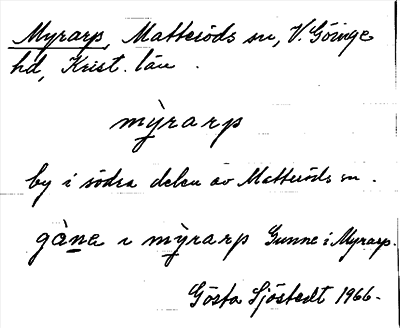 Myrarp, Matteröds sn, V. Göinge
hd, Krist. län.
my�Ìrarp
by i södra delen av Matteröds sn.
gàne ı my�Ìrarp Gunne i Myrarp.
Gösta Sjöstedt 1966.